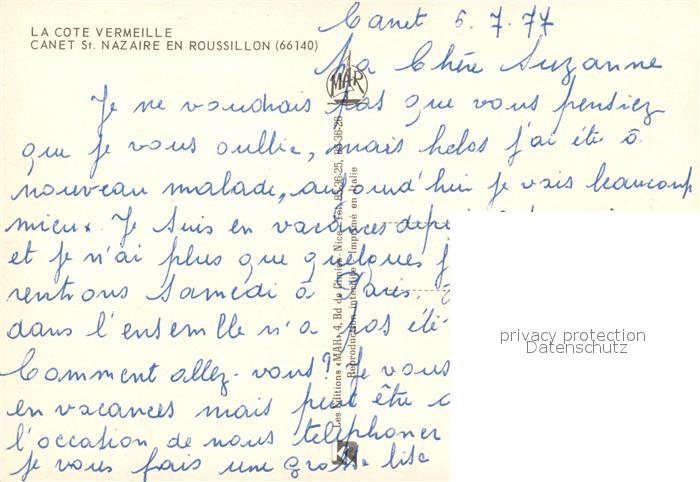 LA COTE VERMEILLE
CANET St. NAZAIRE EN ROUSSILLON (66140)
Canet 5.7.77
Ma Chère Suzanne
Je ne voudrais pas que vous pensiez
que je vous oublie, mais helas j'ai été à
nouveau malade, aujourd'hui je vais beaucoup
mieux. Je suis en vacances depuis
et je n'ai plus que quelques j
rentrons Samedi à Paris.
dans l'ensemble n'a pas été
Comment allez-vous? Je vous
en vacances mais peut être
l'occation de nous telephoner
je vous fais une grosse bise
MAR
Les Editions «MAR», 4, Bd de Cimiez - Nice - Tél.
Reproduction interdite - Imprimé en Italie
privacy protection
Datenschutz